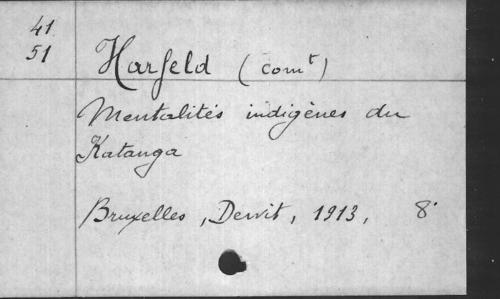 41
51
Harfeld (comt)
Mentalités indigènes du
Katanga
Bruxelles, Dewit, 1913, 8°